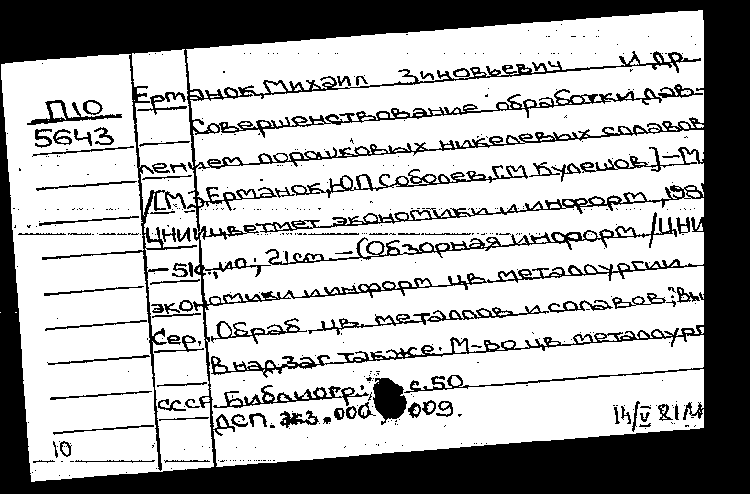 П10
5643
Ерманок, Михаил Зиновьевич и др.
Совершенствование обработки дав-
лением порошковых никелевых сплавов
/[М.З. Ерманок, Ю.П. Соболев, Г.М. Кулешов]. – М.:
ЦНИИцветмет экономики и информ., 1981
– 51с., ил; 21см. – (Обзорная информ. / ЦНИИ
экономики и информ. цв. металлургии.
Сер. „Обраб. цв. металлов и сплавов; Вы
В над. заг. также: М-во цв. металлург
СССР. Библиогр.: с. 50.
ДСП. Экз. 000 009.
10